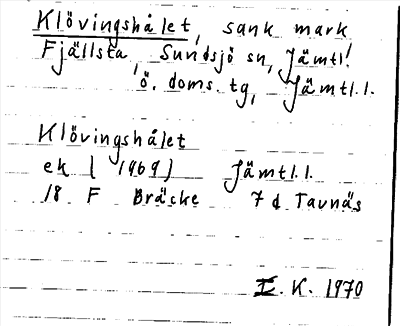 Klövingshålet, sank mark
Fjällsta, Sundsjö sn, Jämtl.
ö. doms. tg, Jämtl.l.
Klövingshålet
ek (1969) Jämtl.l.
18 F Bräcke 7 d Tavnäs
I. K. 1970